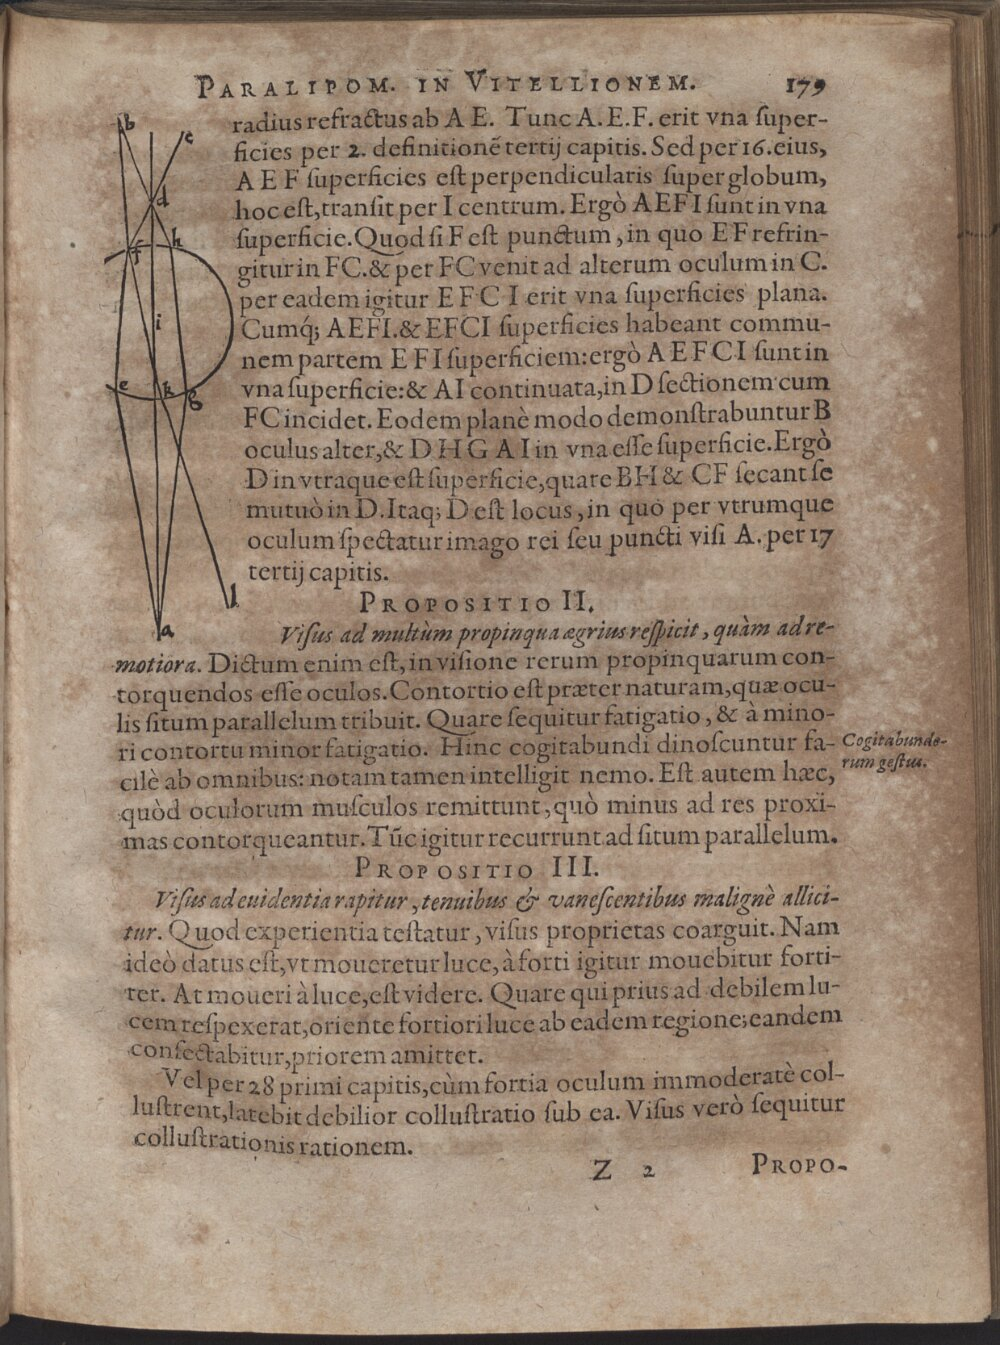 PARALIPOM. IN VITELLIONEM. 179
radius refractus ab A E. Tunc A. E. F. erit vna ſuper-
ficies per 2. definitionē tertij capitis. Sed per 16. eius,
A E F ſuperficies eſt perpendicularis ſuper globum,
hoc eſt, tranſit per I centrum. Ergò A E F I ſunt in vna
ſuperficie. Quod ſi F eſt punctum, in quo E F refrin-
gitur in FC. & per FC venit ad alterum oculum in C.
per eadem igitur E F C I erit vna ſuperficies plana.
Cumq́; AEFI. & EFCI ſuperficies habeant commu-
nem partem E F I ſuperficiem: ergò A E F C I ſunt in
vna ſuperficie: & AI continuata, in D ſectionem cum
FC incidet. Eodem planè modo demonſtrabuntur B
oculus alter, & D H G A I in vna eſſe ſuperficie. Ergò
D in vtraque eſt ſuperficie, quare BH & CF ſecant ſe
mutuò in D. Itaq; D eſt locus, in quo per vtrumque
oculum ſpectatur imago rei ſeu puncti viſi A. per 17
tertij capitis.
b
c
d
f
h
i
e
k
g
l
a
PROPOSITIO II.
Viſus ad multùm propinqua ægrius reſpicit, quàm ad re-
motiora. Dictum enim eſt, in viſione rerum propinquarum con-
torquendos eſſe oculos. Contortio eſt præter naturam, quæ ocu-
lis ſitum parallelum tribuit. Quare ſequitur fatigatio, & à mino-
ri contortu minor fatigatio. Hinc cogitabundi dinoſcuntur fa-
cilè ab omnibus: notam tamen intelligit nemo. Eſt autem hæc,
quòd oculorum muſculos remittunt, quò minus ad res proxi-
mas contorqueantur. Tūc igitur recurrunt ad ſitum parallelum.
Cogitabunde-
rum geſtus.
PROPOSITIO III.
Viſus ad euidentia rapitur, tenuibus & vaneſcentibus malignè allici-
tur. Quod experientia teſtatur, viſus proprietas coarguit. Nam
ideò datus eſt, vt moueretur luce, à forti igitur mouebitur forti-
ter. At moueri à luce, eſt videre. Quare qui prius ad debilem lu-
cem reſpexerat, oriente fortiori luce ab eadem regione; eandem
conſectabitur, priorem amittet.
Vel per 28 primi capitis, cùm fortia oculum immoderatè col-
luſtrent, latebit debilior colluſtratio ſub ea. Viſus verò ſequitur
colluſtrationis rationem.
Z 2 PROPO-